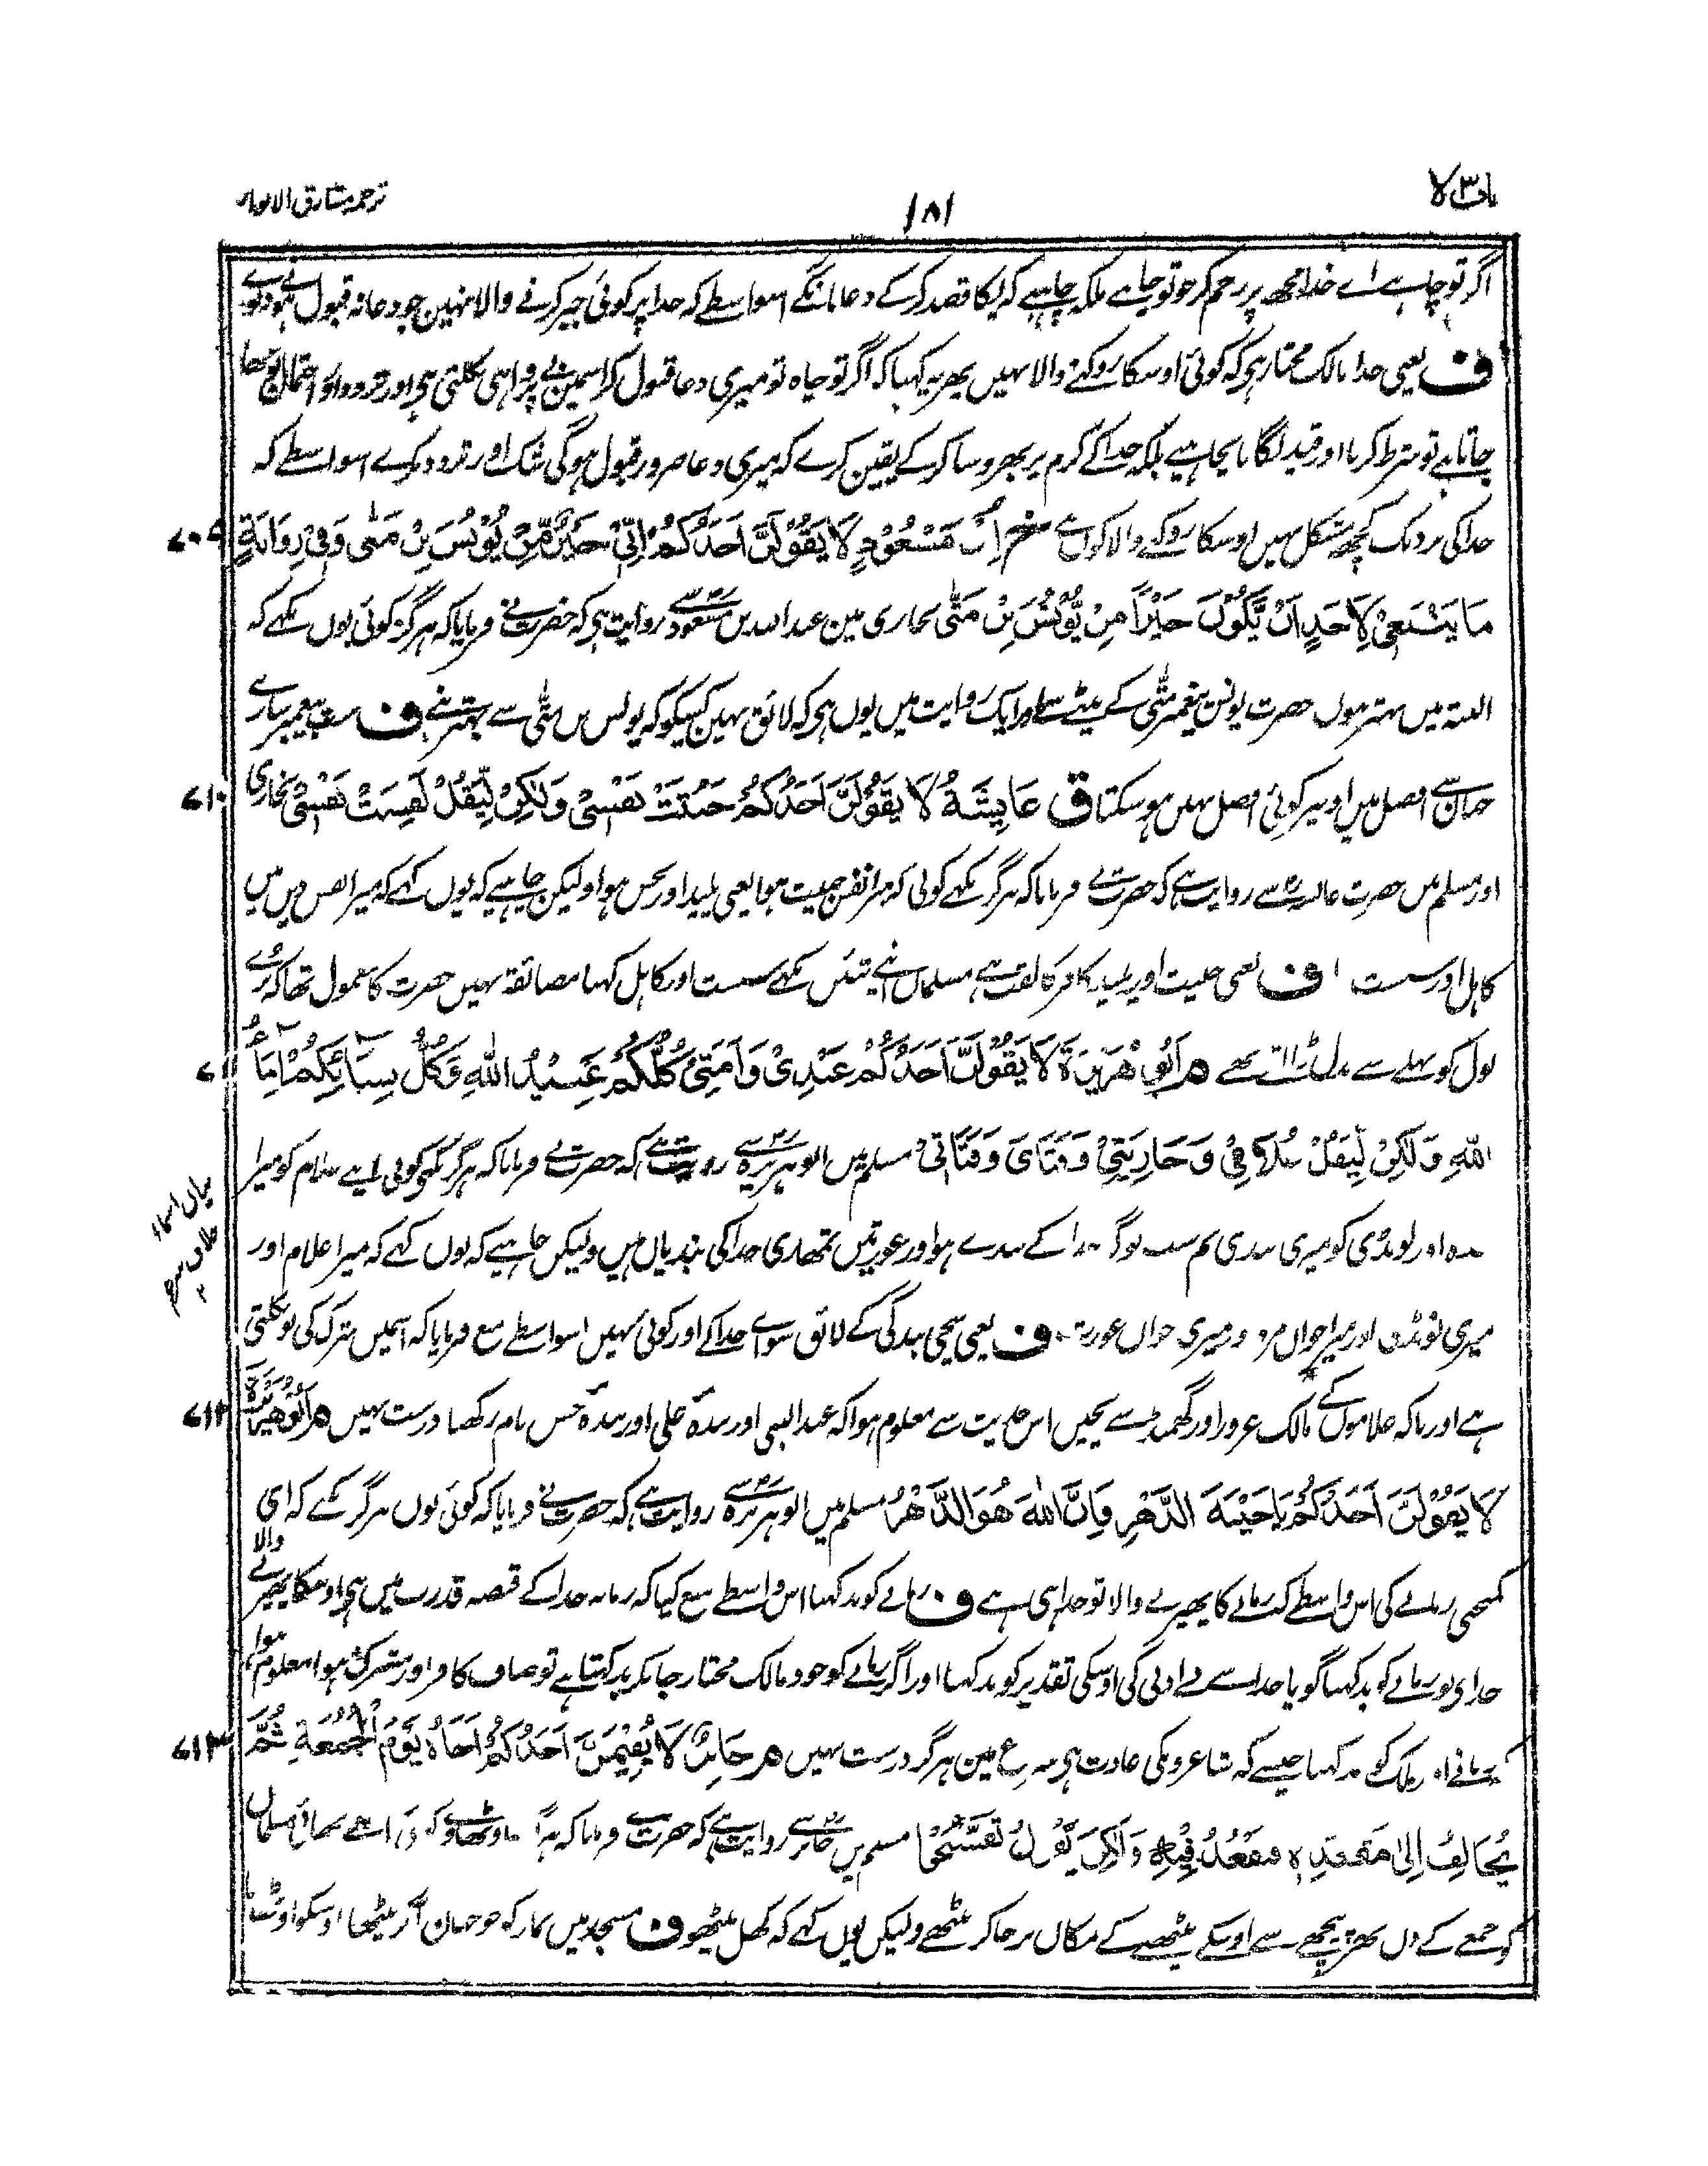 باب ٣ لا
١٨١
ترجمہ مشارق الانوار
اگر تو چاہے اے خدا مجھ پر رحم کر جو تو چاہے بلکہ چاہیے کہ پکا قصد کر کے دعا مانگے اسواسطے کہ خدا پر کوئی جبر کرنے والا نہین جو دعا نہ قبول
ف یعنی خدا مالک مختار ہی کہ کوئی اوسکا روکنے والا نہیں پھر یہ کہنا کہ اگر تو چاہ تو میری دعا قبول کر اسمین بے پروا ہی نکلتی ہی اور تردد اور احتمال
جاتا ہے تو شرط کرنا اور قید لگانا بیجا ہیے بلکہ خدا کے کرم پر بھروسا کر کے یقین کرے کہ میری دعا ضرور قبول ہوگی شک اور تردد نکرے اسواسطے کہ
خدا کی نزدیک کچھ مشکل نہیں اوسکا روکنے والا کون ہے خ ابْن مَسْعُوْدٍ لَا يَقُوْلَنَّ اَحَدُكُمْ اِنِّيْ خَيْرٌ مِّنْ يُوْنُسَ بْنِ مَتّٰى وَفِيْ رِوَايَةٍ
٧٠٩
مَا يَنْبَغِيْ لِاَحَدٍ اَنْ يَّكُوْنَ خَيْرًا مِنْ يُّوْنُسَ بْنِ مَتّٰى بخاری مین عبداللہ بن مسعود سے روایت ہی کہ حضرت نے فرمایا کہ ہرگز کوئی یوں نکہے کہ
البتہ میں بہتر ہوں حضرت یونس پیغمبر متّٰی کے بیٹے سے اور ایک روایت میں یوں ہی کہ لائق نہین کسیکو کہ یونس بن متّٰی سے بہتر بنے ف پیغمبر سارے
جہان سے افضل ہیں اونپر کوئی افضل نہیں ہو سکتا ق عَايِشَةُ لَا يَقُوْلَنَّ اَحَدُكُمْ خَبُثَتْ نَفْسِيْ وَلٰكِنْ لِّيَقُلْ لَقِسَتْ نَفْسِيْ بخاری
٧١٠
اور مسلم میں حضرت عائشہ سے روایت ہے کہ حضرت نے فرمایا کہ ہرگز نکہے کوئی کہ میرا نفس خبیث ہوا یعنی پلید اور نجس ہوا ولیکن چاہیے کہ یوں کہے کہ میرا نفس
کاہل اور سست ف یعنی خبیث اور پلید کافر کا لقب ہے مسلمان اپنے تئیں نکہے سست اور کاہل کہنا مضائقہ نہیں حضرت کا معمول تھا کہ برے
بول کو بھلے سے بدل ڈالتے تھے م اَبُوْ هُرَيْرَةَ لَا يَقُوْلَنَّ اَحَدُكُمْ عَبْدِيْ وَاَمَتِيْ كُلُّكُمْ عَبِيْدُ اللّٰهِ وَكُلُّ نِسَآئِكُمْ اِمَآءُ
٧١١
اللّٰهِ وَلٰكِنْ لِّيَقُلْ غُلَامِيْ وَجَارِيَتِيْ وَفَتَايَ وَفَتَاتِيْ مسلم میں ابو ہریرہ سے روایت ہے کہ حضرت نے فرمایا کہ ہرگز نکہے کوئی اپنے غلام کو میرا
بندہ اور لونڈی کو میری بندی تم سب لوگ خدا کے بندے ہو اور عورتیں تمھاری خدا کی بندیاں ہیں ولیکن چاہیے کہ یوں کہے کہ میرا غلام اور
میری لونڈی اور میرا جوان مرد اور میری جوان عورت ف یعنی سچی بندگی کے لائق سواے خدا کے اور کوئی نہیں اسواسطے منع فرمایا کہ اسمیں شرک کی بو نکلتی
ہے اور تاکہ غلاموں کے مالک غرور اور گھمنڈ سے بچیں اس حدیث سے معلوم ہوا کہ عبدالنبی اور بندہ علی اور بندہ حسن نام رکھنا درست نہیں م اَبُوْ هُرَيْرَةَ
٧١٢
لَا يَقُوْلَنَّ اَحَدُكُمْ يَا خَيْبَةَ الدَّهْرِ فَاِنَّ اللّٰهَ هُوَ الدَّهْرُ مسلم میں ابو ہریرہ سے روایت ہے کہ حضرت نے فرمایا کہ کوئی یوں ہرگز نکہے کہ ای
کمبختی زمانے کی اس واسطے کہ زمانے کا پھیرنے والا تو خدا ہی ہے ف زمانے کو بد کہنا اس واسطے منع کیا کہ زمانہ خدا کے قبضہ قدرت میں ہی اوسکا پھیرنے والا
خدا ہی تو زمانے کو بد کہنا گویا خدا سے بے ادبی کی اوسکی تقدیر کو بد کہا اور اگر زمانے کو خود مالک مختار جانکر بد کہتا ہے تو صاف کافر اور مشرک ہوا معلوم ہوا
کہ زمانے اور فلک کو بد کہنا جیسے کہ شاعروں کی عادت ہی شرع مین ہرگز درست نہیں م جَابِرٌ لَا يُقِيْمَنَّ اَحَدُكُمْ اَخَاهُ يَوْمَ الْجُمُعَةِ ثُمَّ
٧١٣
يُخَالِفُ اِلٰى مَقْعَدِهٖ فَيَقْعُدُ فِيْهِ وَلٰكِنْ يَّقُوْلُ تَفَسَّحُوْا مسلم میں جابر سے روایت ہے کہ حضرت نے فرمایا کہ اپنے بھائی مسلمان
کو جمعے کے دن پھر پیچھے سے اوسکے بیٹھنے کے مکان پر جا کر بیٹھے ولیکن یوں کہے کہ کھل بیٹھو ف مسجد میں نماز کو جو جہان آکر بیٹھا اوسکو اوٹھانا